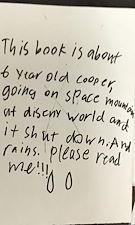 This book is about
6 year old cooper,
going on space mountain
at discny world and
it shut down. And
rains. please read
me!!!